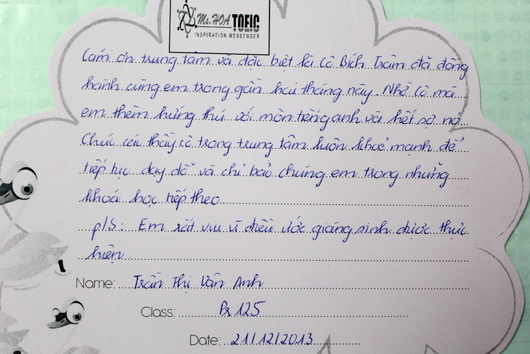 Ms.HOA TOEIC
INSPIRATION MESSENGER
Cám ơn trung tâm và đặc biệt là cô Bích Trâm đã đồng
hành cùng em trong gần hai tháng này. Nhờ cô mà
em thêm hứng thú với môn tiếng anh và hết sợ nó
Chúc các thầy cô trong trung tâm luôn khoẻ mạnh để
tiếp tục dạy dỗ và chỉ bảo chúng em trong những
khoá học tiếp theo
p/S: Em rất vui vì điều ước giáng sinh được thực
hiện
Name: Trần Thị Vân Anh
Class: Pr 125
Date: 21/12/2013